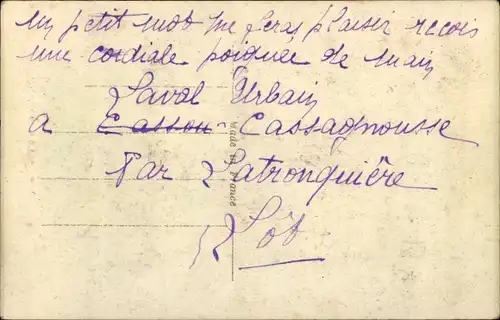 un petit mot me feras plaisir recois
une cordiale poignee de main
Laval Urbain
a Cassou Cassagnousse
Par Latronquière
Lot
Made in France